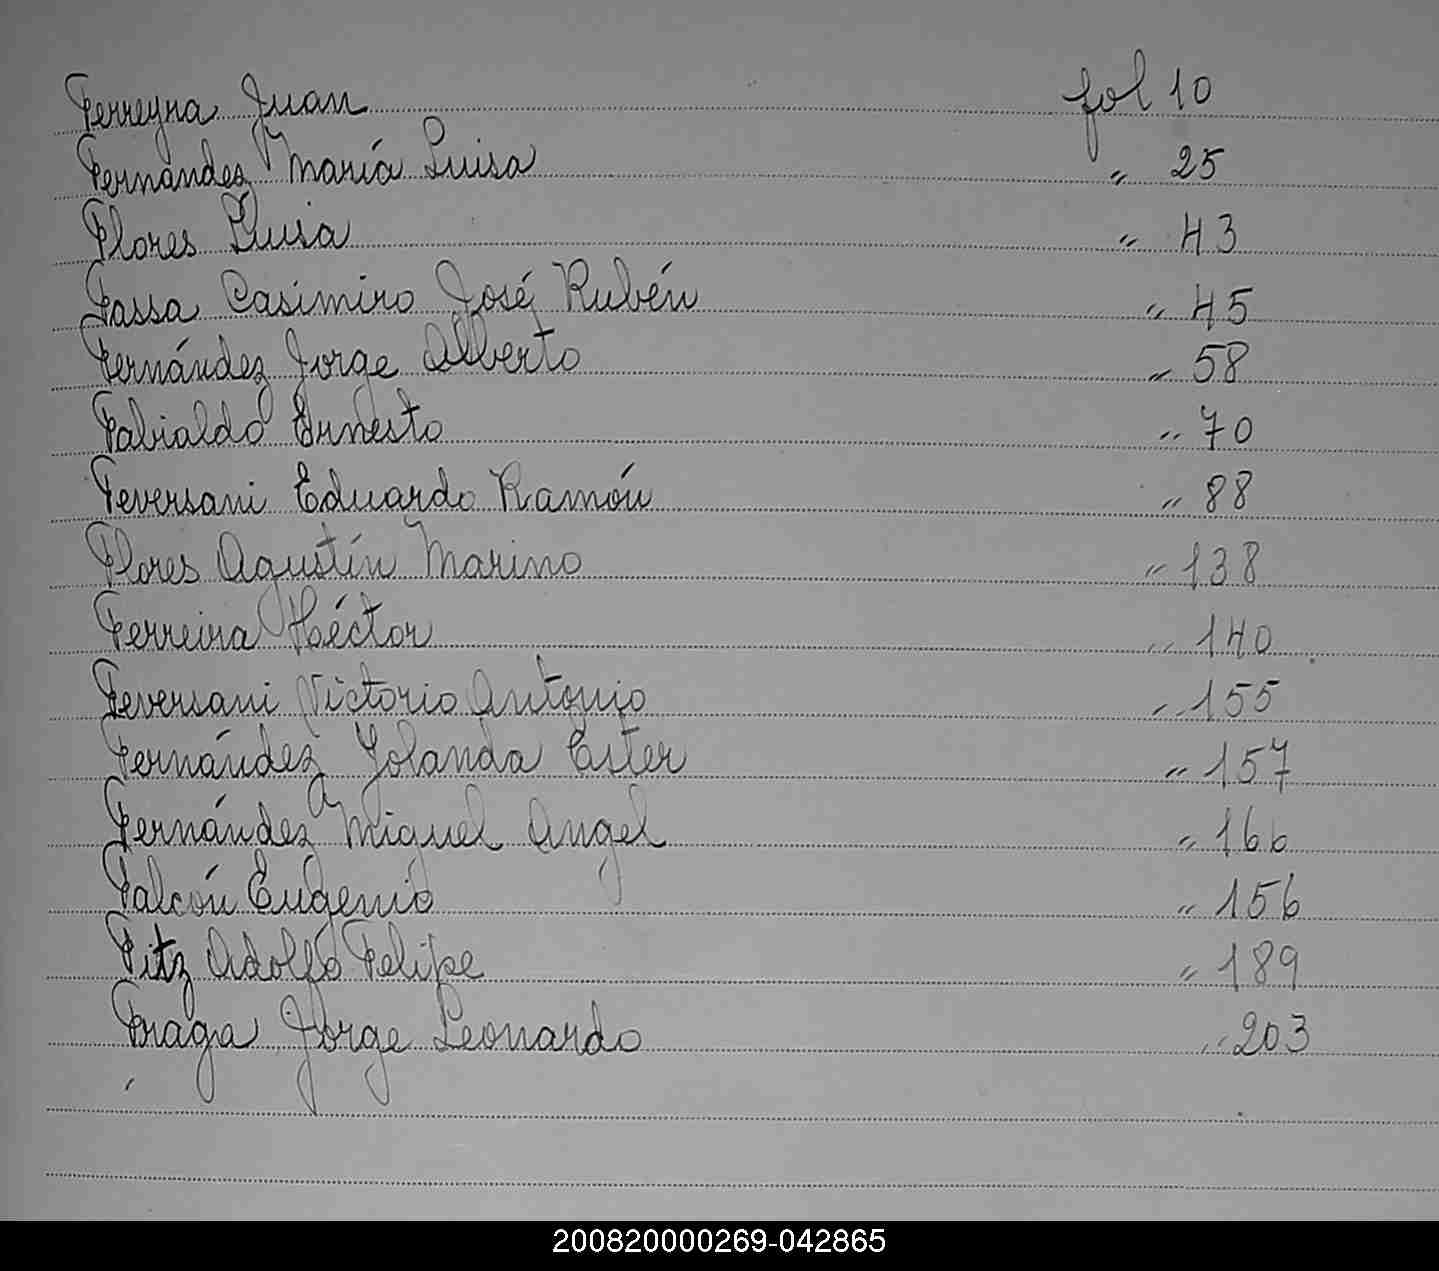 Ferreyra Juan fol 10
Fernández María Luisa " 25
Flores Luisa " 43
Fassa Casimiro José Rubén " 45
Fernández Jorge Alberto " 58
Fabialdo Ernesto " 70
Feversani Eduardo Ramón " 88
Flores Agustín Marino " 138
Ferreira Héctor " 140
Feversani Victorio Antonio " 155
Fernández Yolanda Ester " 157
Fernández Miguel Angel " 166
Falcón Eugenio " 156
Fitz Adolfo Felipe " 189
Fraga Jorge Leonardo " 203
200820000269-042865